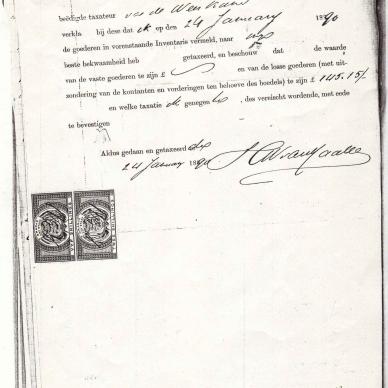 beëdigde taxateur van de Weeskamer
verkla bij deze dat ek op den 24 January 1890
de goederen in vorenstaande Inventaris vermeld, naar
beste bekwaamheid heb getaxeerd, en beschouw dat de waarde
van de vaste goederen te zijn £ en van de losse goederen (met uit-
zondering van de kontanten en vorderingen ten behoeve des boedels) te zijn £ 145.15/-
en welke taxatie ik genegen , des vereischt wordende, met eede
te bevestigen
Aldus gedaan en getaxeerd
24 January 1890